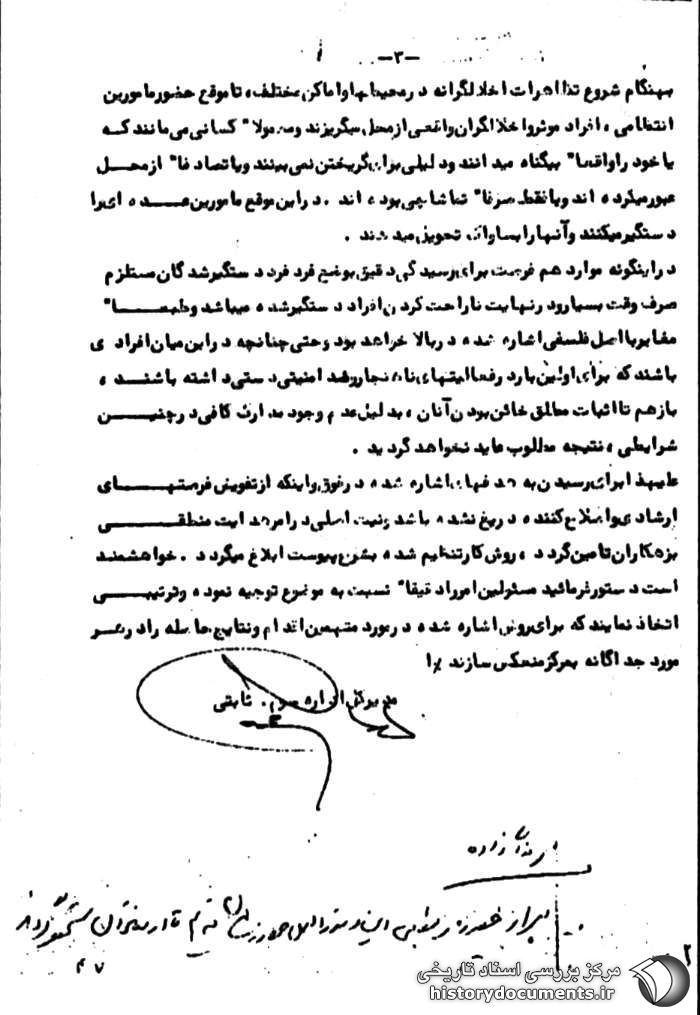 —۳—
بهنگام شروع تظاهرات اخلالگرانه در محیطها و اماکن مختلف، تا موقع حضور مامورین
انتظامی، افراد موثر و اخلالگران واقعی از محل میگریزند و معمولا" کسانی می مانند که
یا خود را واقعا" بیگناه میدانند و دلیلی برای گریختن نمی بینند و یا تصادفا" از محل
عبور میکرده اند و یا فقط صرفا" تماشاچی بوده اند. در این موقع مامورین عده ای را
دستگیر میکنند و آنها را بساواک تحویل میدهند.
در اینگونه موارد هم فرصت برای رسیدگی دقیق بوضع فرد فرد دستگیرشدگان مستلزم
صرف وقت بسیار و در نهایت ناراحت کردن افراد دستگیر شده میباشد و طبعا"
مغایر با اصل فلسفی اشاره شده در بالا خواهد بود و حتی چنانچه در این میان افرادی
باشند که برای اولین بار در فعالیتهای ناهنجار و ضد امنیتی دستی داشته باشند،
باز هم تا اثبات مطلق خائن بودن آنان، بدلیل عدم وجود مدارک کافی در چنین
شرایطی، نتیجه مطلوب عاید نخواهد گردید.
علیهذا برای رسیدن به هدفهای اشاره شده در فوق و اینکه از تفویض فرصتهای
ارشادی و اصلاح کننده دریغ نشده باشد و نیت اصلی در امر هدایت منطقی
بزهکاران تامین گردد، روش کار تنظیم شده بشرح پیوست ابلاغ میگردد. خواهشمند
است دستور فرمائید مسئولین امر را دقیقا" نسبت به موضوع توجیه نموده و ترتیبی
اتخاذ نمایند که برای روش اشاره شده در مورد متهمین اقدام و نتایج حاصله را در هر
مورد جداگانه بمرکز منعکس سازند
مدیر کل اداره سوم. ثابتی
مرکز بررسی اسناد تاریخی
historydocuments.ir